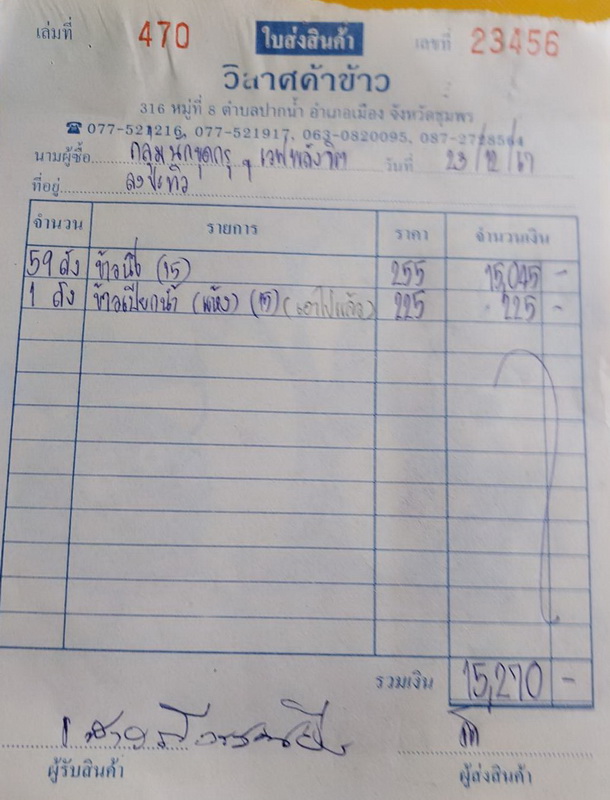 เล่มที่ 470 ใบส่งสินค้า เลขที่ 23456
วิลาศค้าข้าว
316 หมู่ที่ 8 ตำบลปากน้ำ อำเภอเมือง จังหวัดชุมพร
☎ 077-521216, 077-521917, 063-0820095, 087-2728564
นามผู้ซื้อ กลุ่ม วันที่ 23/12/67
ที่อยู่ ลงปะทิว
จำนวน รายการ ราคา จำนวนเงิน
59 ลัง (15) 255 15,045 -
1 ลัง ข้าวเปียกน้ำ (แห้ง) (15) (เอาไปแล้ว) 225 225 -
รวมเงิน 15,270 -
ผู้รับสินค้า ผู้ส่งสินค้า